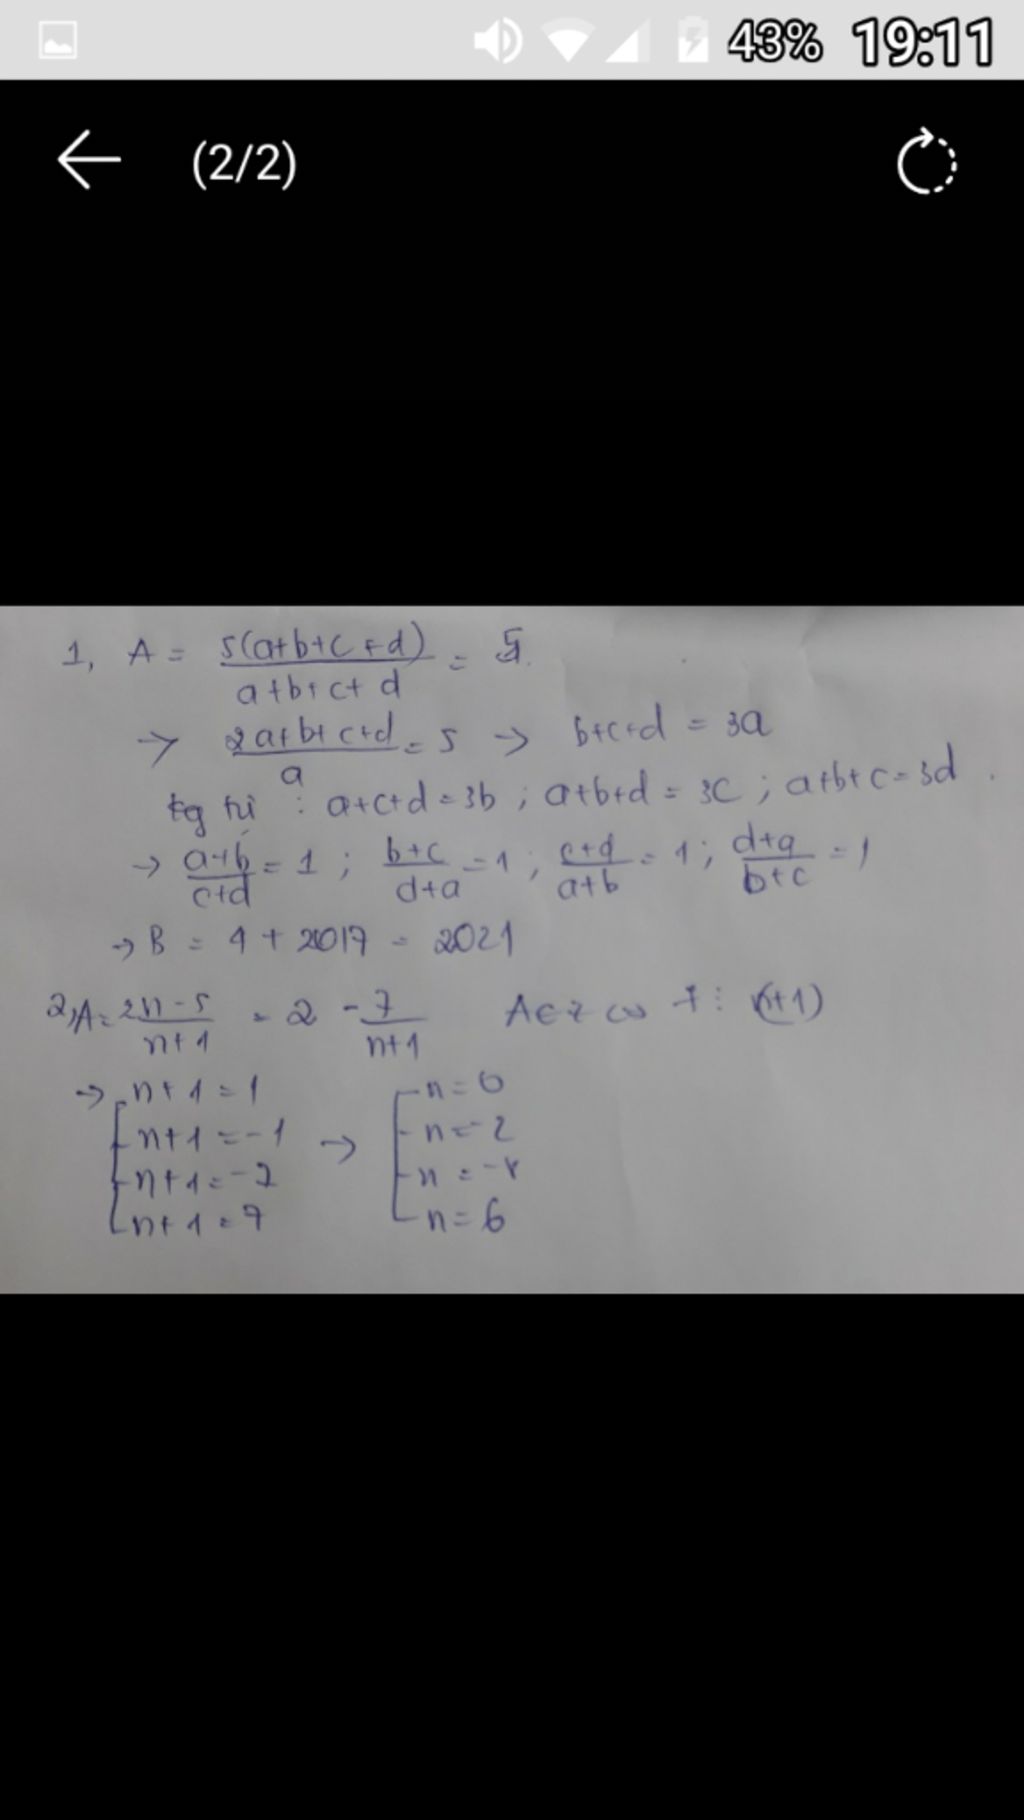 43% 19:11
(2/2)
1, A = 5(a+b+c+d) / a+b+c+d = 5.
→ 2a+b+c+d / a = 5 → b+c+d = 3a
tg tự : a+c+d = 3b ; a+b+d = 3c ; a+b+c = 3d .
→ a+b / c+d = 1 ; b+c / d+a = 1 ; c+d / a+b = 1 ; d+a / b+c = 1
→ B = 4 + 2017 = 2021
2, A = 2n-5 / n+1 = 2 - 7 / n+1 A ∈ Z 7 ⋮ (n+1)
→ n+1 = 1 n = 0
n+1 = -1 → n = -2
n+1 = -7 n = -8
n+1 = 7 n = 6